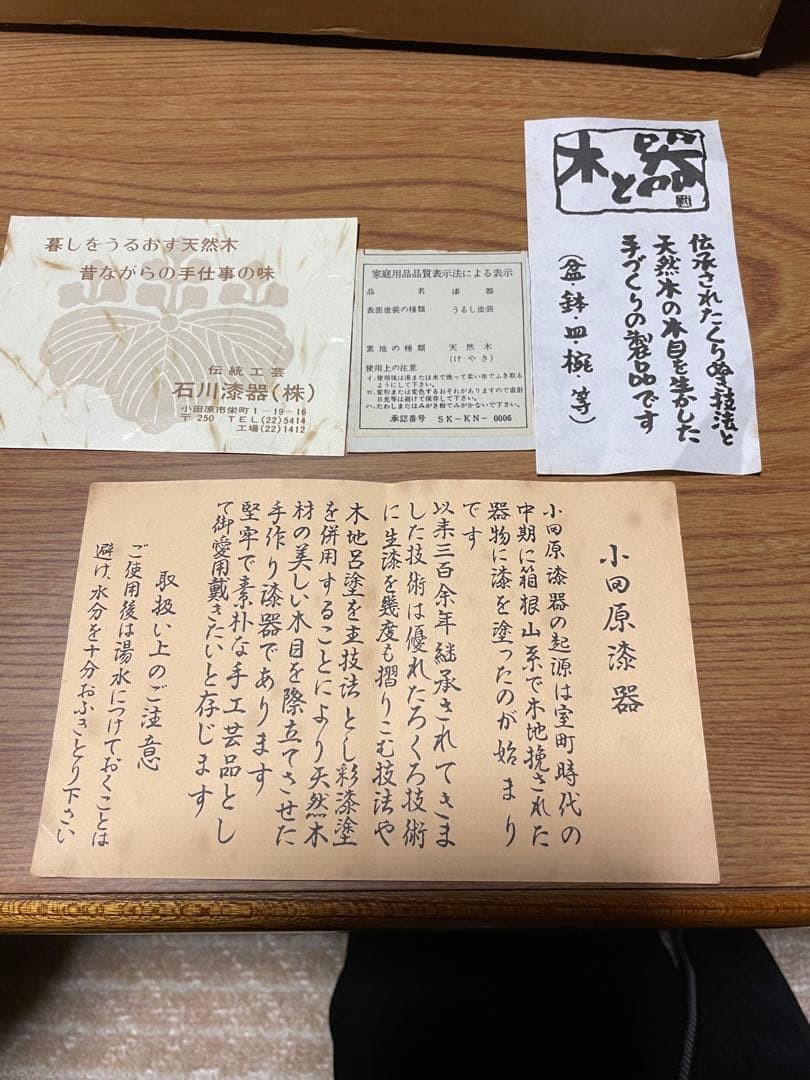 暮しをうるおす天然木
昔ながらの手仕事の味
伝統工芸
石川漆器(株)
小田原市栄町1－19－16
〒250 TEL(22)5414
工場(22)1412
家庭用品品質表示法による表示
品名 漆器
表面塗装の種類 うるし塗装
素地の種類 天然木
(けやき)
使用上の注意
イ.使用後は湯または水で洗って柔い布でふき取る
ようにして下さい。
ロ.変形または変色するおそれがありますので直射
日光等は避けて保存して下さい。
ハ.たわしまたはみがき粉でみがかないで下さい。
承認番号 SK－KN－0006
木と器
伝承されたくりぬき技法と
天然木の木目を生かした
手づくりの製品です
(盆・鉢・皿・椀 等)
小田原漆器
小田原漆器の起源は室町時代の
中期に箱根山系で木地挽された
器物に漆を塗ったのが始まり
です
以来三百余年継承されてきま
した技術は優れたろくろ技術
に生漆を幾度も摺りこむ技法や
木地呂塗を主技法とし彩漆塗
を併用することにより天然木
材の美しい木目を際立てさせた
手作り漆器であります
堅牢で素朴な手工芸品とし
て御愛用戴きたいと存じます
取扱い上のご注意
ご使用後は湯水につけておくことは
避け、水分を十分おふきとり下さい